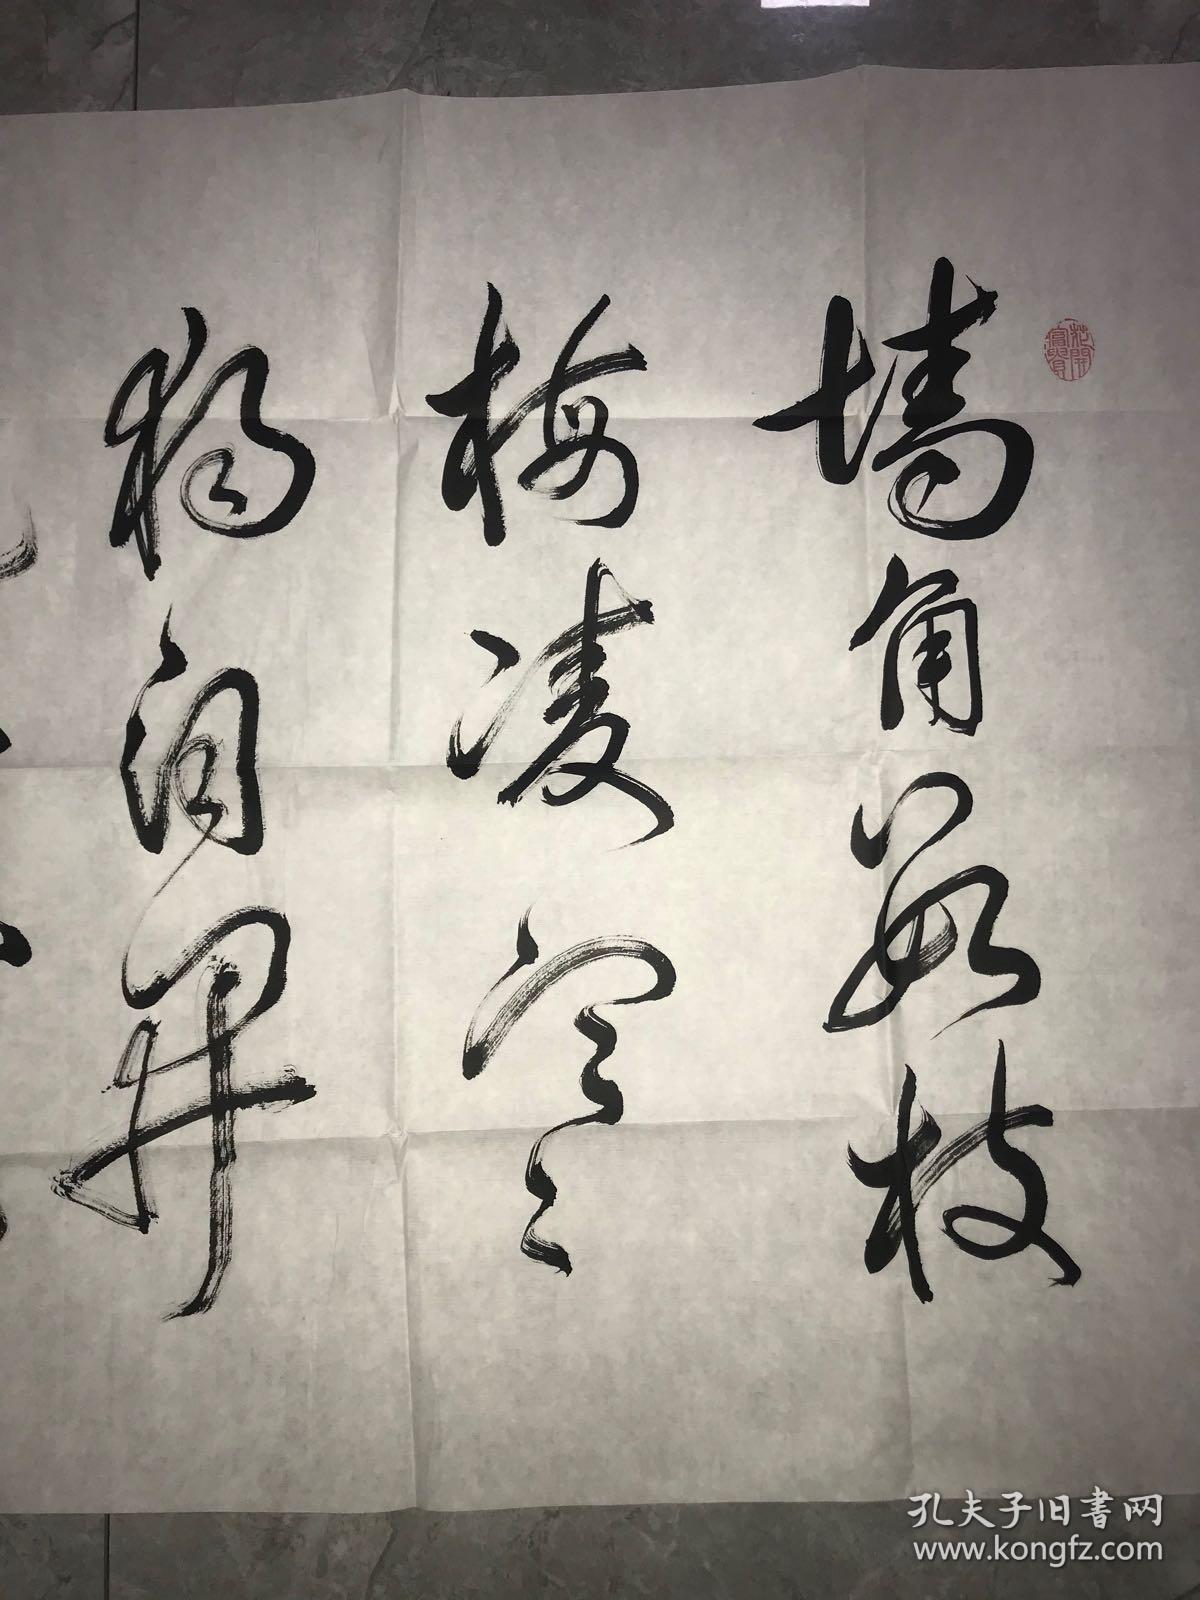 墙角数枝
梅凌寒
独自开
花開
富貴
孔夫子旧書网
www.kongfz.com